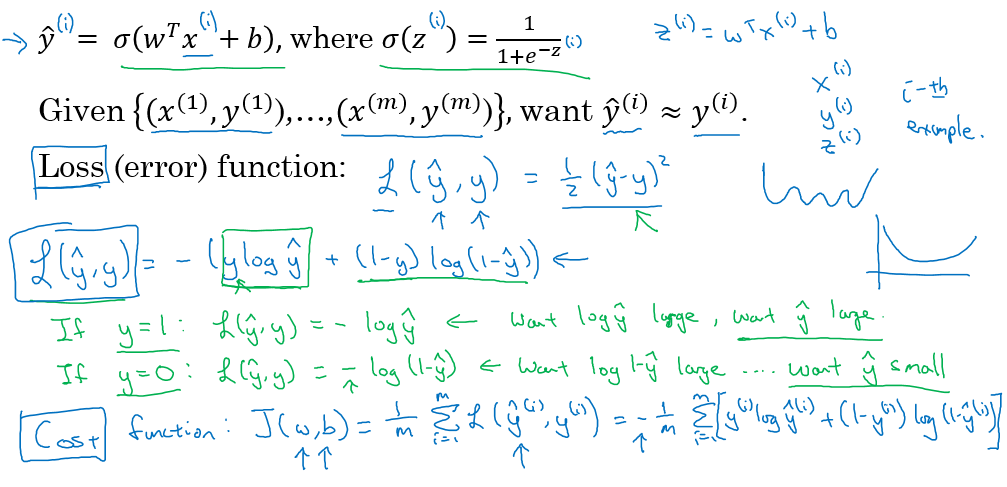 → ŷ⁽ⁱ⁾ = σ(wᵀx⁽ⁱ⁾ + b), where σ(z⁽ⁱ⁾) = 1/(1+e^(-z⁽ⁱ⁾))
z⁽ⁱ⁾ = wᵀx⁽ⁱ⁾ + b
Given {(x⁽¹⁾, y⁽¹⁾),…,(x⁽ᵐ⁾, y⁽ᵐ⁾)}, want ŷ⁽ⁱ⁾ ≈ y⁽ⁱ⁾.
x⁽ⁱ⁾
y⁽ⁱ⁾
z⁽ⁱ⁾
i-th
example.
Loss (error) function: ℒ(ŷ, y) = ½(ŷ-y)²
ℒ(ŷ, y) = - (y log ŷ + (1-y) log(1-ŷ)) ←
If y=1: ℒ(ŷ, y) = - log ŷ ← Want log ŷ large, want ŷ large.
If y=0: ℒ(ŷ, y) = - log(1-ŷ) ← Want log 1-ŷ large .... want ŷ small
Cost function: J(w,b) = 1/m Σᵢ₌₁ᵐ ℒ(ŷ⁽ⁱ⁾, y⁽ⁱ⁾) = - 1/m Σᵢ₌₁ᵐ [y⁽ⁱ⁾ log ŷ⁽ⁱ⁾ + (1-y⁽ⁱ⁾) log(1-ŷ⁽ⁱ⁾)]